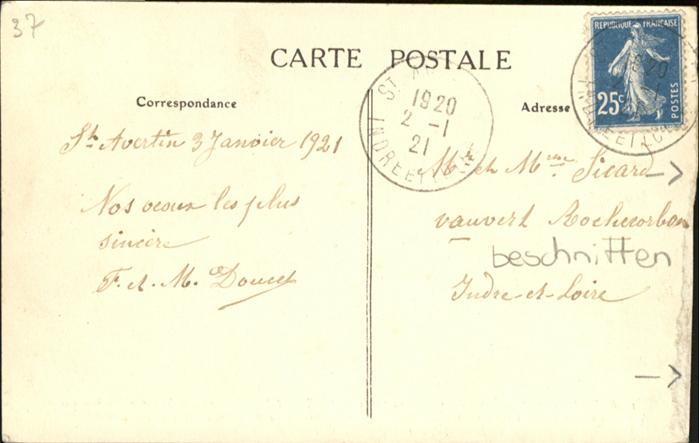 37
CARTE POSTALE
REPUBLIQUE FRANÇAISE
25c
POSTES
Correspondance
Adresse
ST A
1920
2 -1
21
INDRE ET L
St Avertin 3 Janvier 1921
Nos vœux les plus
sincère
F. et M. Doucet
Mr et Mme Sicard
vauvert Rochecorbon
beschnitten
Indre-et-Loire